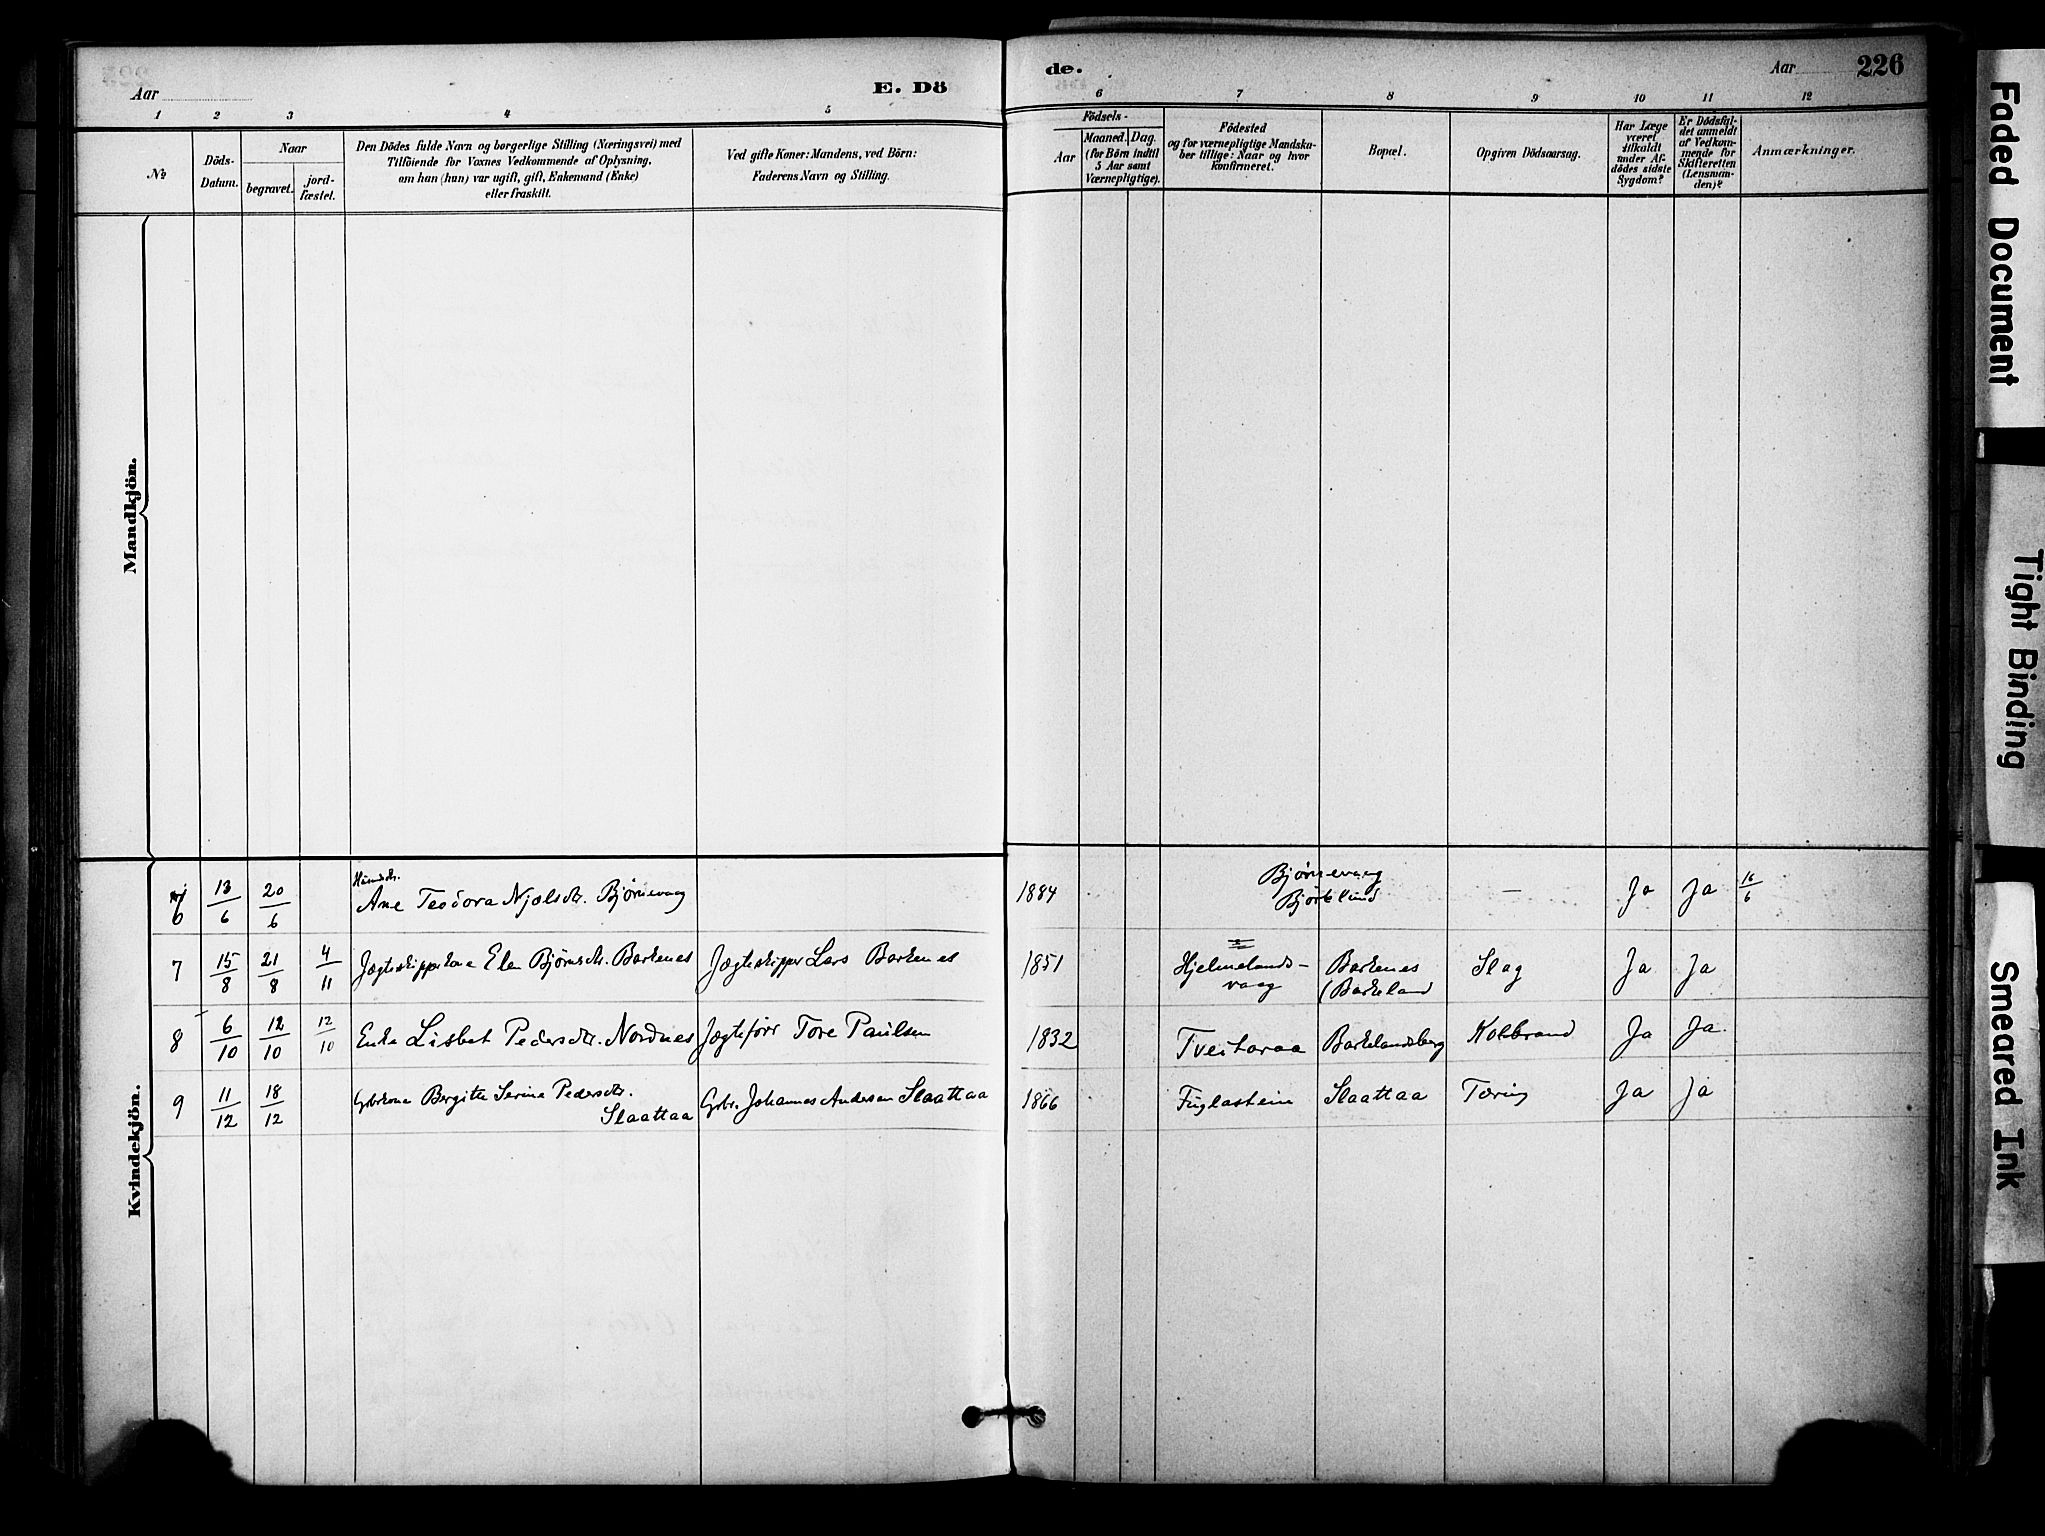 Aar
E. Dö
de.
Aar
226
1 2 3 4 5 6 7 8 9 10 11 12
No
Döds-Datum.
Naar
begravet.
jord-fæstet.
Den Dödes fulde Navn og borgerlige Stilling (Næringsvei) med
Tilföiende for Voxnes Vedkommende af Oplysning,
om han (hun) var ugift, gift, Enkemand (Enke)
eller fraskilt.
Ved gifte Koner: Mandens, ved Börn:
Faderens Navn og Stilling.
Födsels-
Aar
Maaned. Dag.
(for Börn indtil
5 Aar samt
Værnepligtige).
Födested
og for værnepligtige Mandska-
ber tillige: Naar og hvor
konfirmeret.
Bopæl.
Opgiven Dödsaarsag.
Har Læge
været
tilkaldt
under Af-
dödes sidste
Sygdom?
Er Dödsfal-
det anmeldt
af Vedkom-
mende for
Skifteretten
(Lensman-
den)?
Anmærkninger.
Mandkjön.
Kvindekjön.
6 13/6 20/6 Ane Teodora Njælsdtr. Bjørnevaag 1884 Bjørnevaag — Ja Ja 16/6
7 15/8 21/8 4/11 Jægteskipperkone Elen Bjørnsdtr. Barkenes Jægteskipper Lars Barkenes 1851 Hjelmelands-
vaag Barkenes
(Barkeland Slag Ja Ja
8 6/10 12/10 12/10 Enke Lisbet Pedersdtr. Nordnes Jægtefører Tore Paulsen 1832 Tveitaraa Barkelandsberg Kolbrand Ja Ja.
9 11/12 18/12 Gbrkone Bergitte Serina Pedersdtr.
Slaattaa Gbr. Johannes Andersen Slaattaa 1866 Fuglastein Slaattaa Tæring Ja Ja
Faded Document
Tight Binding
Smeared Ink